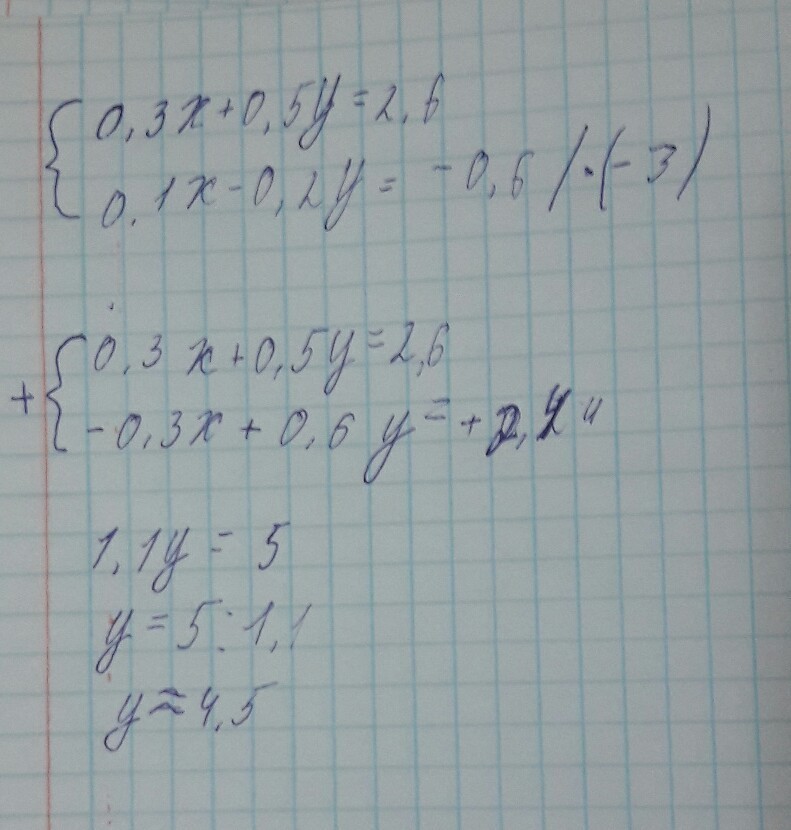 { 0,3x+0,5y=2,6
0,1x-0,2y= -0,6 /·(-3)
+ { 0,3x+0,5y=2,6
-0,3x + 0,6y = +2,4
1,1y = 5
y = 5:1,1
y ≈ 4,5